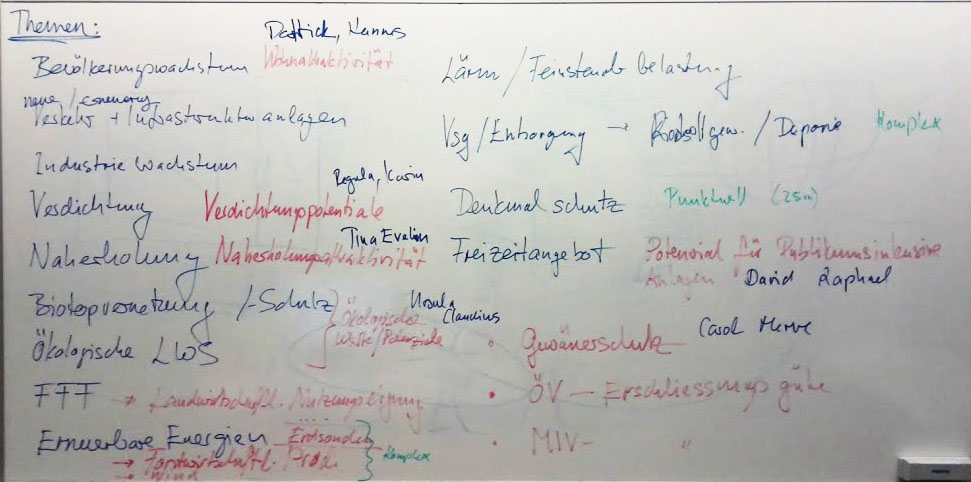 Themen:
Dettrick, Hannes
Bevölkerungswachstum Wohnattraktivität
neue /
Verkehr + Infrastruktur anlagen
Industrie Wachstum
Regula, Karin
Verdichtung Verdichtungspotentiale
Tina Evelin
Naherholung Naherholungsattraktivität
Biotopvernetzung /-Schutz
Ursula
Claudius
Ökologische
Werte/Potenziale
Ökologische LWS
FFF → Landwirtschaftl. Nutzungseignung
Erneuerbare Energien Erdsonden
→ Forstwirtschaftl. Prod. Komplex
→ Wind
Lärm / Feinstaub belastung
Vsg/Entsorgung → / Deponie Komplex
Denkmal schutz Punktuell (25m)
Freizeitangebot Potenzial für Publikumsintensive
Anlagen David Raphael
Carol Merve
• Gewässerschutz
• ÖV — Erschliessungs güte
• MIV - "